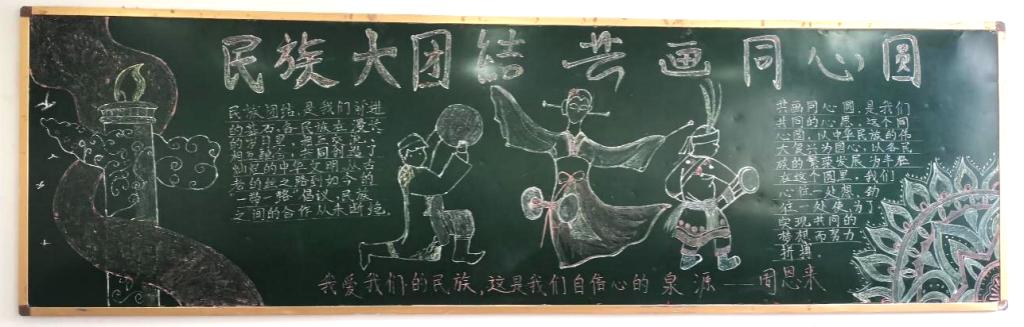 民族大团結 共画同心圆
民族团结,是我们前进
的基石。各民族在漫长
的岁月里,
相互融合,共同创造了
灿烂的中华文明。从古
老的丝之路到如今的
一带一路倡议,民族
之间的合作从未断绝。
共画同心圆,是我们
共同的心愿。这个同
心圆,以中华民族的伟
大复兴为圆心,以各民
族的繁荣发展为半径
在这个圆里,我们
心往一处想,劲
往一处使,为了
实现共同的
梦想而努力
拼搏。
我爱我们的民族,这是我们自信心的泉源——周恩来